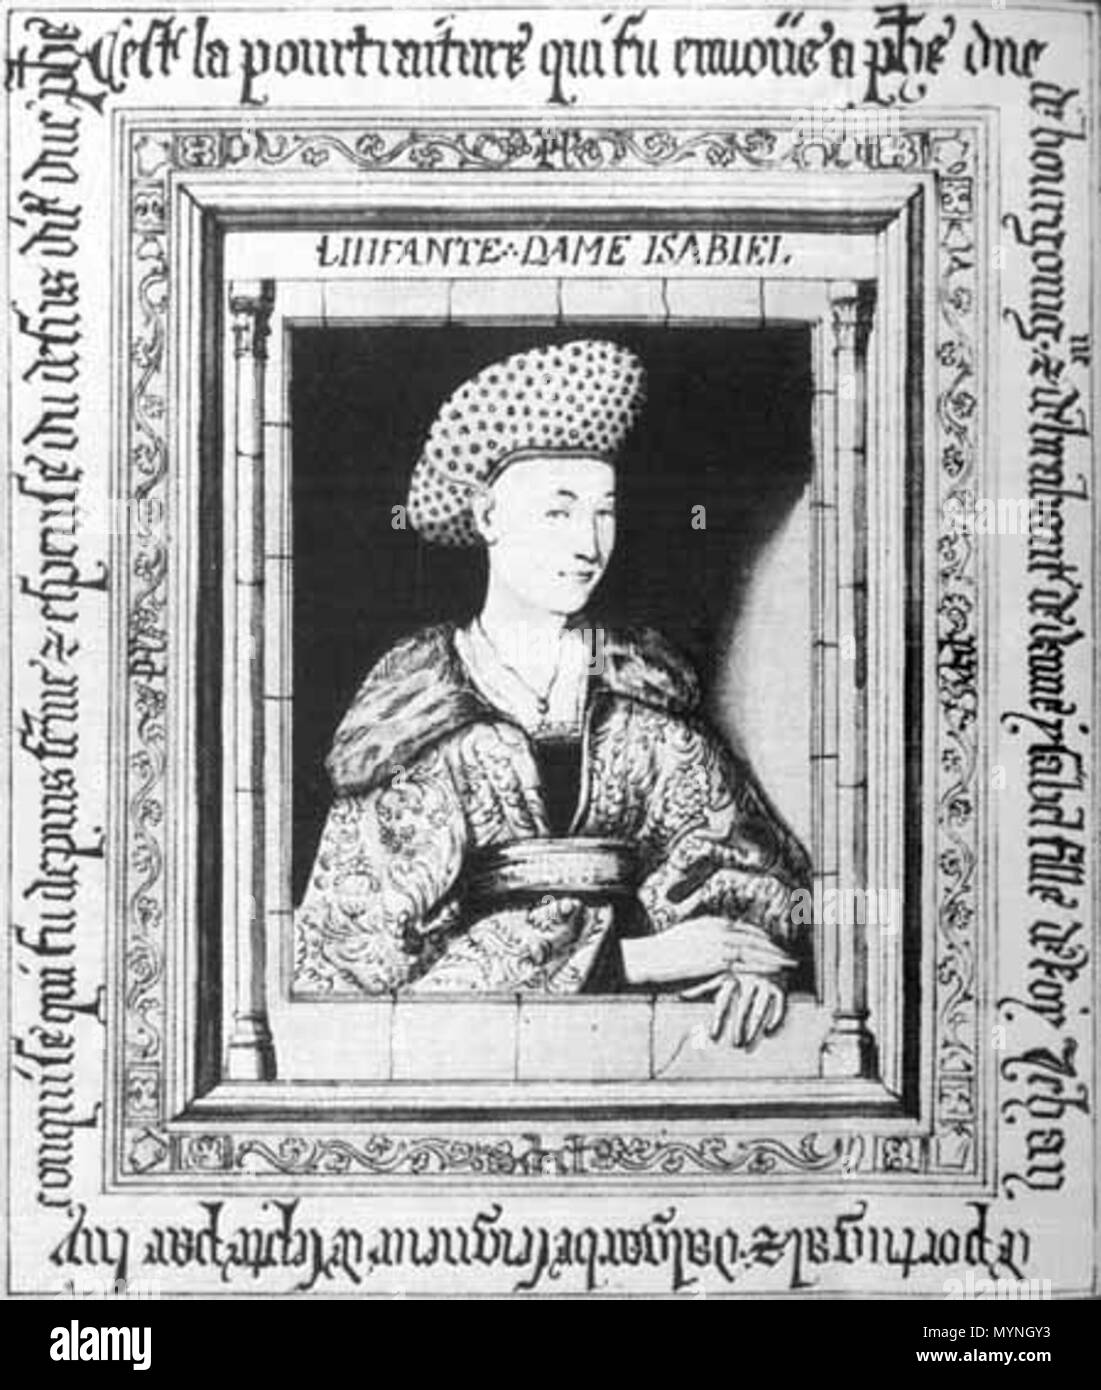 C'est la pourtraiture qui fu envoiie a ph̃e duc
de bourgoingne & de brabant de dame ysabel fille de Roy Jehan
de portugal & dalgarbe seigneur de septe par luy
conquise qui fu depuis feme & espeuse du desus dit duc ph̃e
LINFANTE DAME ISABIEL
a alamy
alamy
Image ID: MYNGY3
www.alamy.com